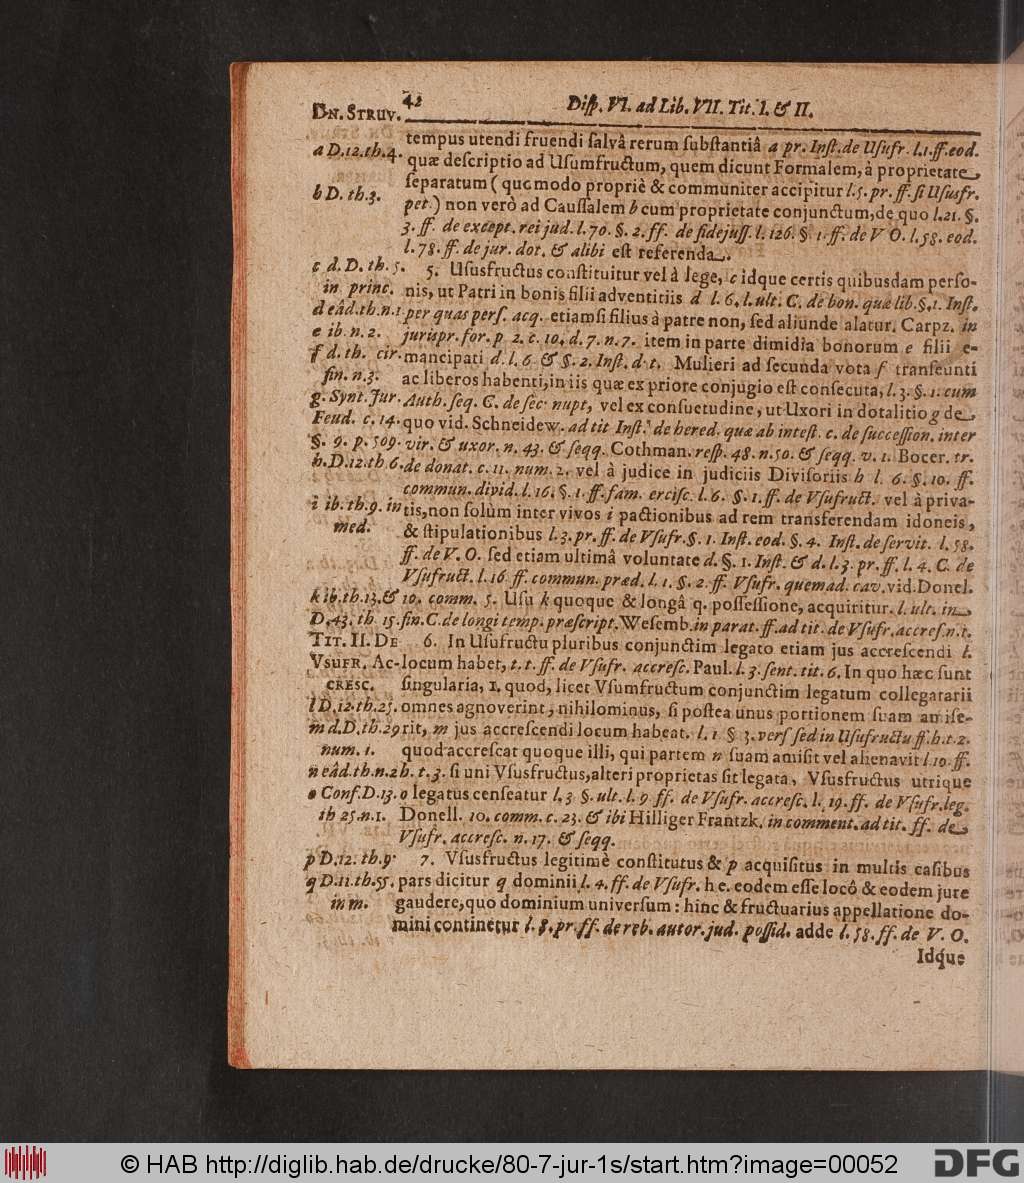 DN. STRUV. 42 Diſp. VI. ad Lib. VII. Tit. I. & II.
a D.12.th.4. tempus utendi fruendi ſalvâ rerum ſubſtantiâ a pr. Inſt. de Uſufr. l.1.ff.eod.
quæ deſcriptio ad Uſumfructum, quem dicunt Formalem, à proprietate,
b D. th.3. ſeparatum (quomodo propriè & communiter accipitur l.5.pr.ff.ſi Uſusfr.
pet.) non verò ad Cauſſalem b cum proprietate conjunctum, de quo l.21. §.
3. ff. de except. rei jud. l.70. §. 2. ff. de fidejuſſ. l. 126. §. 1. ff. de V O. l. 58. eod.
l. 78. ff. de jur. dot. & alibi eſt referenda.
c d. D. th. 5. 5. Uſusfructus conſtituitur vel à lege, c idque certis quibusdam perſo-
in princ. nis, ut Patri in bonis filii adventitiis d l. 6. l. ult. C. de bon. quæ lib. §. 1. Inſt.
d eâd.th.n.1 per quas perſ. acq. etiamſi filius à patre non, ſed aliunde alatur. Carpz. in
e ib. n. 2. jurispr. for. p 2. c. 10. d. 7. n. 7. item in parte dimidia bonorum e filii e-
f d. th. cir. mancipati d. l. 6 & §. 2. Inſt. d. t. Mulieri ad ſecunda vota f tranſeunti
fin. n.3. ac liberos habenti, in iis quæ ex priore conjugio eſt conſecuta, l. 3. §. 1. cum
g. Synt. Jur. Auth. ſeq. C. de ſec. nupt, vel ex conſuetudine, ut Uxori in dotalitio g de
Feud. c. 14. quo vid. Schneidew. ad tit Inſt. de hered. quæ ab inteſt. c. de ſucceſſion. inter
§. 9. p. 509. vir. & uxor. n. 43. & ſeqq. Cothman. reſp. 48. n. 50. & ſeqq. v. 1. Bocer. tr.
h. D.12.th 6. de donat. c. 11. num. 2. vel à judice in judiciis Diviſoriis h l. 6. §. 10. ff.
commun. divid. l. 16. §. 1. ff. fam. erciſc. l. 6. §. 1. ff. de Vſufruct. vel à priva-
i ib. th.9. in tis, non ſolùm inter vivos i pactionibus ad rem transferendam idoneis,
med. & ſtipulationibus l. 3. pr. ff. de Vſufr. §. 1. Inſt. eod. §. 4. Inſt. de ſervit. l. 58.
ff. de V. O. ſed etiam ultimâ voluntate d. §. 1. Inſt. & d. l. 3. pr. ff. l. 4. C. de
Vſufruct. l. 16 ff. commun. præd. l. 1. §. 2. ff. Vſufr. quemad. cav. vid. Donel.
k ib.th.13.& 10. comm. 5. Uſu k quoque & longâ q. poſſeſſione, acquiritur. l. ult. in
D.43. th. 15. fin. C. de longi temp. præſcript. Weſemb. in parat. ff. ad tit. de Vſufr. accreſ. n. 1.
TIT. II. DE 6. In Uſufructu pluribus conjunctim legato etiam jus accreſcendi l.
VSUFR. AC- locum habet, t. t. ff. de Vſufr. accreſc. Paul. l. 3. ſent. tit. 6. In quo hæc ſunt
CRESC. ſingularia, 1. quod, licet Vſumfructum conjunctim legatum collegatarii
l D.12.th.25. omnes agnoverint, nihilominus, ſi poſtea unus portionem ſuam amiſe-
m d.D.th.29 rit, m jus accreſcendi locum habeat. l. 1 § 3. verſ ſed in Uſufructu ff. h. t. 2.
num. 1. quod accreſcat quoque illi, qui partem n ſuam amiſit vel alienavit l. 10. ff.
n eâd.th.n.2 h. t. 3. ſi uni Vſusfructus, alteri proprietas ſit legata, Vſusfructus utrique
o Conf.D.13. o legatus cenſeatur l. 3 §. ult. l. 9 ff. de Vſufr. accreſc. l. 19. ff. de Vſufr. leg.
th 25.n.1. Donell. 10. comm. c. 23. & ibi Hilliger Frantzk. in comment. ad tit. ff. de
Vſufr. accreſc. n. 17. & ſeqq.
p D.12. th.9. 7. Vſusfructus legitimè conſtitutus & p acquiſitus in multis caſibus
q D.11.th.55. pars dicitur q dominii l. 4. ff. de Vſufr. h e. eodem eſſe locô & eodem jure
in m. gaudere, quo dominium univerſum: hinc & fructuarius appellatione do-
mini continetur l. 8. pr. ff. de reb. autor. jud. poſſid. adde l. 58. ff. de V. O.
Idque
© HAB http://diglib.hab.de/drucke/80-7-jur-1s/start.htm?image=00052 DFG